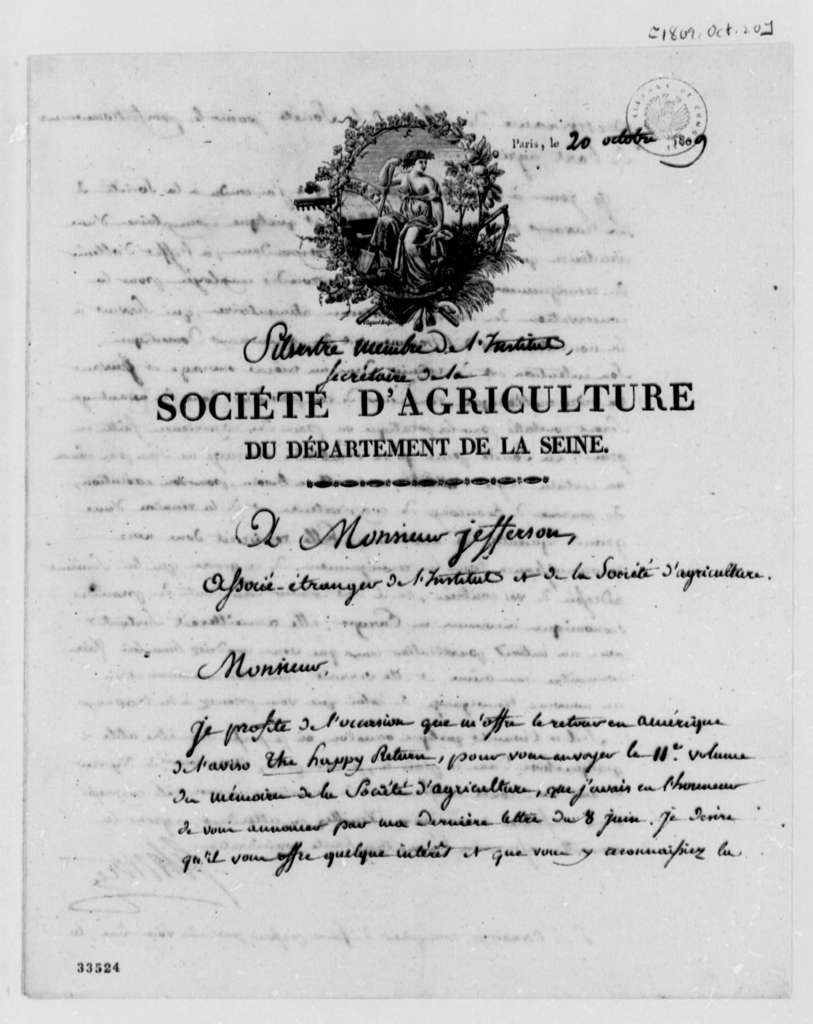 [1809, Oct. 20]
Paris, le 20 octobre 1809
Silvestre membre de l'Institut,
Secrétaire de la
SOCIÉTÉ D'AGRICULTURE
DU DÉPARTEMENT DE LA SEINE.
A Monsieur jefferson,
associé-étranger de l'Institut et de la Société d'agriculture.
Monsieur,
je profite de l'occasion que m'offre le retour en amérique
de l'aviso The happy Return, pour vous envoyer le 11e. volume
des mémoires de la Société d'agriculture, que j'avais eu l'honneur
de vous annoncer par ma dernière lettre du 8 juin. je desire
qu'il vous offre quelque intérêt et que vous y reconnaissiez la
33524